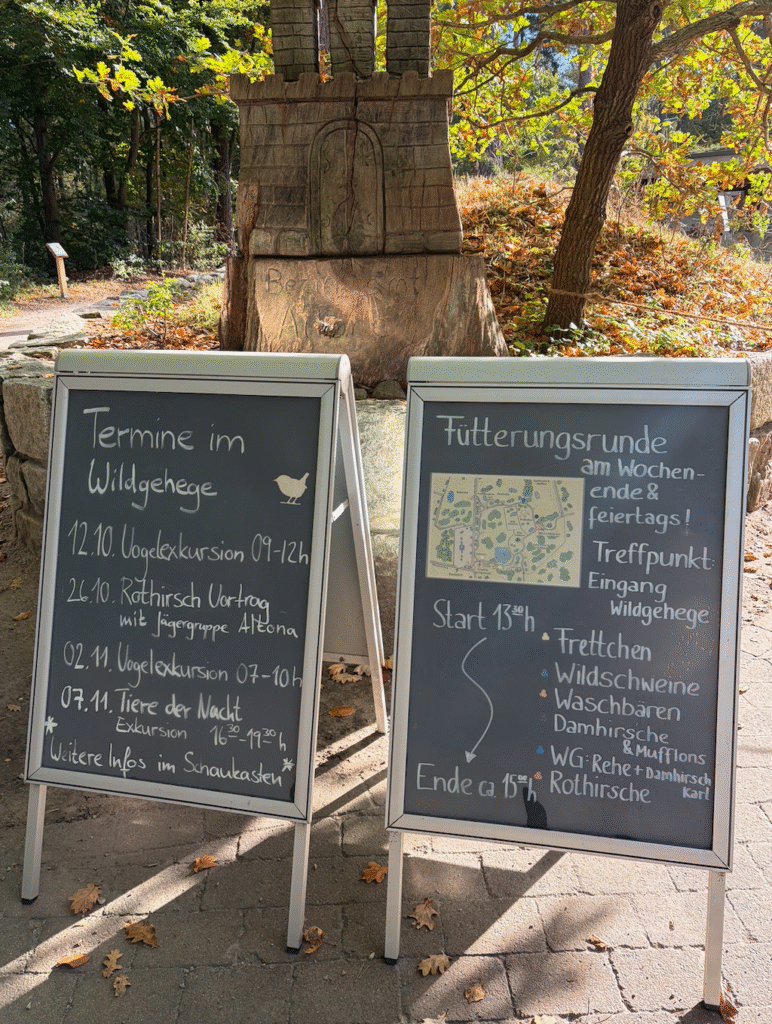 Termine im
Wildgehege
12.10. Vogelexkursion 09-12h
26.10. Rothirsch Vortrag
mit Jägergruppe Altona
02.11. Vogelexkursion 07-10h
07.11. Tiere der Nacht
Exkursion 16³⁰-19³⁰h
* Weitere Infos im Schaukasten *
Fütterungsrunde
am Wochen-
ende &
feiertags!
Treffpunkt:
Eingang
Wildgehege
Start 13³⁰h
Frettchen
Wildschweine
Waschbären
Damhirsche
& Mufflons
WG: Rehe + Damhirsch
Karl
Ende ca. 15⁰⁰h
Rothirsche